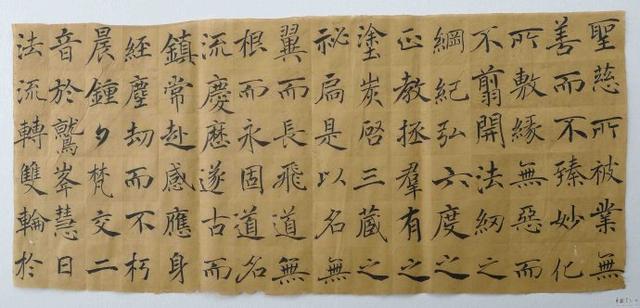 聖慈所被業無
善而不臻妙化
所敷緣無惡而
不翦開法網之
綱紀弘六度之
正教拯羣有之
塗炭啓三藏之
祕扃是以名無
翼而長飛道無
根而永固道名
流慶歷遂古而
鎮常赴感應身
經塵劫而不朽
晨鍾夕梵交二
音於鷲峯慧日
法流轉雙輪於